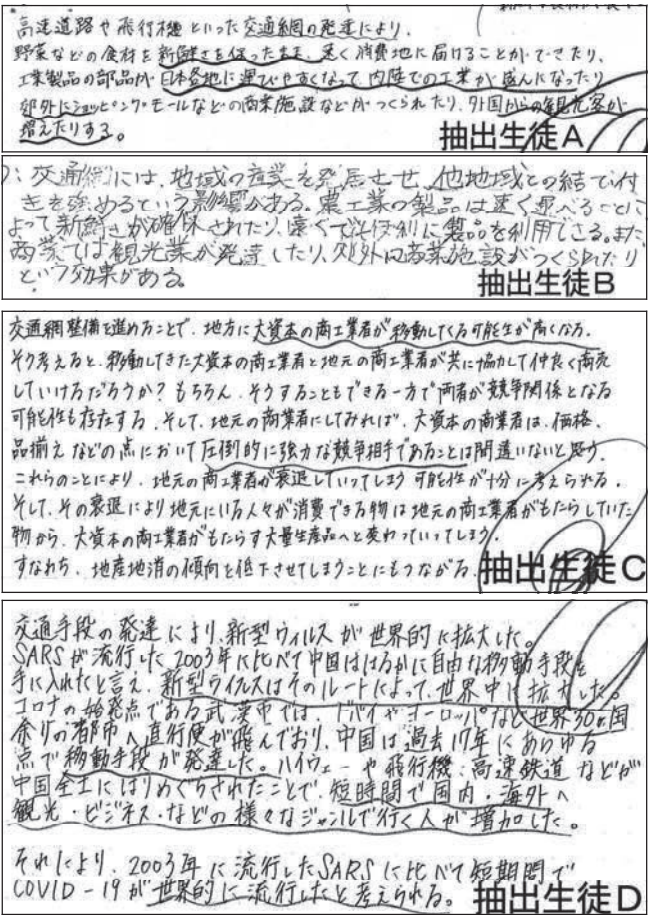 高速道路や飛行機といった交通網の発達により、
野菜などの食材を新鮮さを保ったまま、速く消費地に届けることができたり、
工業製品の部品が日本各地に運びやすくなって内陸での工業が盛んになったり
郊外にショッピングモールなどの商業施設などがつくられたり、外国からの観光客が
増えたりする。
抽出生徒A
交通網には、地域の産業を発展させ、他地域との結び付
きを強めるという影響がある。農工業の製品は速く運べることに
よって新鮮さが確保されたり、遠くでも便利に製品を利用できる。また
商業では観光業が発達したり、郊外に商業施設がつくられたり
という効果がある。
抽出生徒B
交通網整備を進めることで、地方に大資本の商工業者が移動してくる可能性が高くなる。
そう考えると、移動してきた大資本の商工業者と地元の商工業者が共に協力して仲良く商売
していけるだろうか？もちろん、そうすることもできる一方で両者が競争関係となる
可能性も存在する。そして、地元の商業者にしてみれば、大資本の商業者は、価格、
品揃えなどの点において圧倒的に強力な競争相手であることは間違いないと思う。
これらのことにより、地元の商工業者が衰退していってしまう可能性が十分に考えられる。
そして、その衰退により地元にいる人々が消費できる物は地元の商工業者がもたらしていた
物から、大資本の商工業者がもたらす大量生産品へと変わっていってしまう。
すなわち、地産地消の傾向を低下させてしまうことにもつながる。
抽出生徒C
交通手段の発達により、新型ウィルスが世界的に拡大した。
SARSが流行した2003年に比べて中国ははるかに自由な移動手段を
手に入れたと言え、新型ウイルスはそのルートによって、世界中に拡大した。
コロナの始発点である武漢市では、ドバイやヨーロッパなど世界30ヵ国
余りの都市へ直行便が飛んでおり、中国は過去17年にあらゆる
点で移動手段が発達した。ハイウェーや飛行機、高速鉄道などが
中国全土にはりめぐらされたことで、短時間で国内・海外へ
観光・ビジネス・などの様々なジャンルで行く人が増加した。
それにより、2003年に流行したSARSに比べて短期間で
COVID-19が世界的に流行したと考えられる。
抽出生徒D